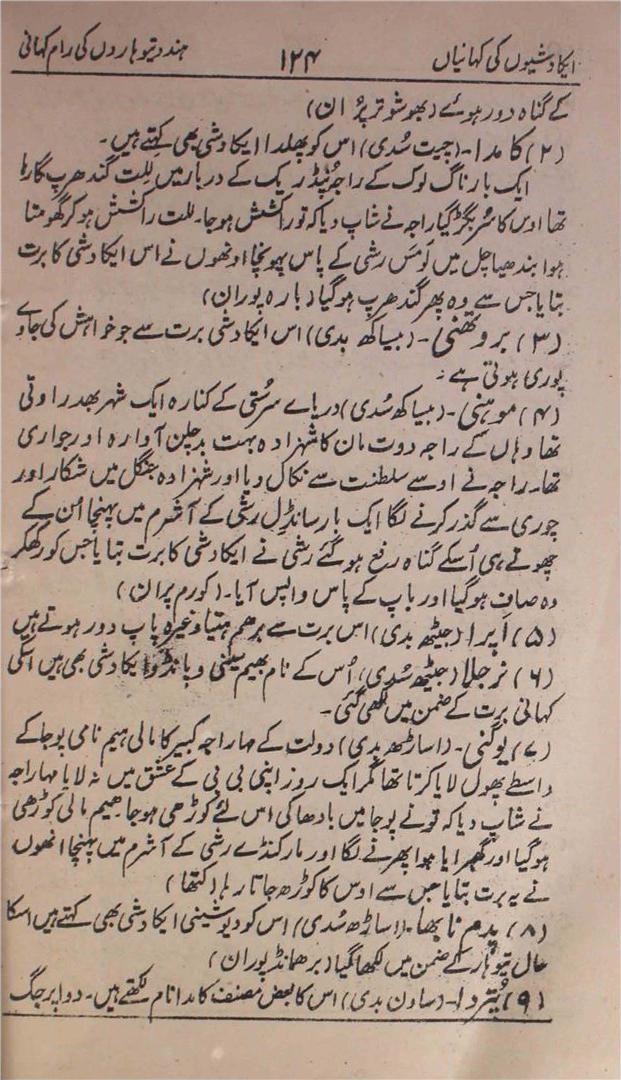 ایکادشیوں کی کہانیاں ۱۲۴ ہندو تیوہاروں کی رام کہانی
کے گناہ دور ہوئے (بھوشوتر پُران)
(۲) کامدا۔ (چیت سُدی) اس کو پھلدا ایکادشی بھی کہتے ہیں۔
ایک بار ناگ لوک کے راجہ پُنڈریک کے دربار میں للت گندھرب گا رہا
تھا اوس کا سُر بگڑ گیا راجہ نے شاپ دیا کہ تو راکشش ہو جا۔ للت راکشش ہو کر گھومتا
ہوا بندھیاچل میں لومس رشی کے پاس پہونچا اونھوں نے اس ایکادشی کا برت
بتایا جس سے وہ پھر گندھرب ہو گیا (بارہ پوران)
(۳) بروتھنی۔ (بیساکھ بدی) اس ایکادشی برت سے جو خواہش کی جاوے
پوری ہوتی ہے۔
(۴) موہنی۔ (بیساکھ سُدی) دریاے سرستی کے کنارہ ایک شہر بھدراوتی
تھا وہاں کے راجہ دوت مان کا شہزادہ بہت بدچلن آوارہ اور جواری
تھا۔ راجہ نے اوسے سلطنت سے نکال دیا اور شہزادہ جنگل میں شکار اور
چوری سے گذر کرنے لگا ایک بار سانڈل رشی کے آشرم میں پہنچا اُن کے
چھوتے ہی اُسکے گناہ رفع ہو گئے رشی نے ایکادشی کا برت بتایا جس کو رکھکر
وہ صاف ہو گیا اور باپ کے پاس واپس آیا۔ (کورم پران)
(۵) اَپرا (جیٹھ بدی) اس برت سے برھم ہتیا وغیرہ پاپ دور ہوتے ہیں
(۶) نرجلا (جیٹھ سُدی) اُس کے نام بھیم سینی و پانڈوا ایکادشی بھی ہیں اسکی
کہانی برت کے ضمن میں لکھی گئی۔
(۷) یوگنی۔ (اساڑھ بدی) دولت کے مہاراجہ کبیر کا مالی ہیم نامی پوجا کے
واسطے پھول لایا کرتا تھا مگر ایک روز اپنی بی بی کے عشق میں نہ لایا مہاراجہ
نے شاپ دیا کہ تو نے پوجا میں بادھا کی اس لئے کوڑھی ہو جا۔ ھیم مالی کوڑھی
ہو گیا اور گھبرایا ہوا پھرنے لگا اور مارکنڈے رشی کے آشرم میں پہنچا انھوں
نے یہ برت بتایا جس سے اوس کا کوڑھ جاتا رہا (کتھا)
(۸) پدم نابھا۔ (اساڑھ سُدی) اس کو دیوشینی ایکادشی بھی کہتے ہیں اسکا
حال تیوہار کے ضمن میں لکھا گیا (برھمانڈ پوران)
(۹) پُتردا۔ (ساون بدی) اس کا بعض مصنف کامدا نام لکھتے ہیں۔ دواپر جگ